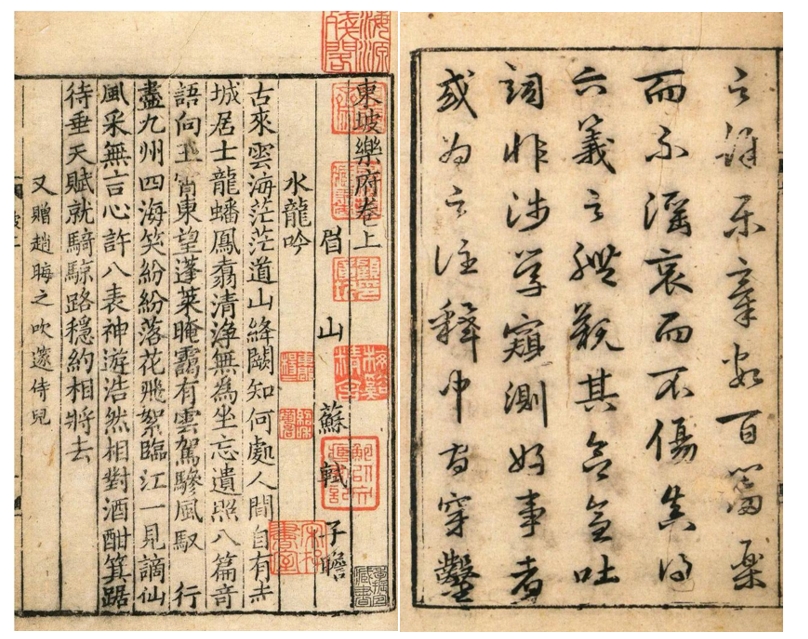 之餘樂章數百篇樂
而不淫哀而不傷真得
六義之體觀其命意吐
詞非涉學窺測好事者
或為之注釋中間穿鑿
東坡樂府卷上
眉山蘇軾子瞻
水龍吟
古來雲海茫茫道山絳闕知何處人間自有赤
城居士龍蟠鳳翥清淨無為坐忘遺照八篇奇
語向玉霄東望蓬萊晻靄有雲駕驂風馭 行
盡九州四海笑紛紛落花飛絮臨江一見謫仙
風采無言心許八表神遊浩然相對酒酣箕踞
待垂天賦就騎鯨路穩約相將去
又贈趙晦之吹邃侍兒